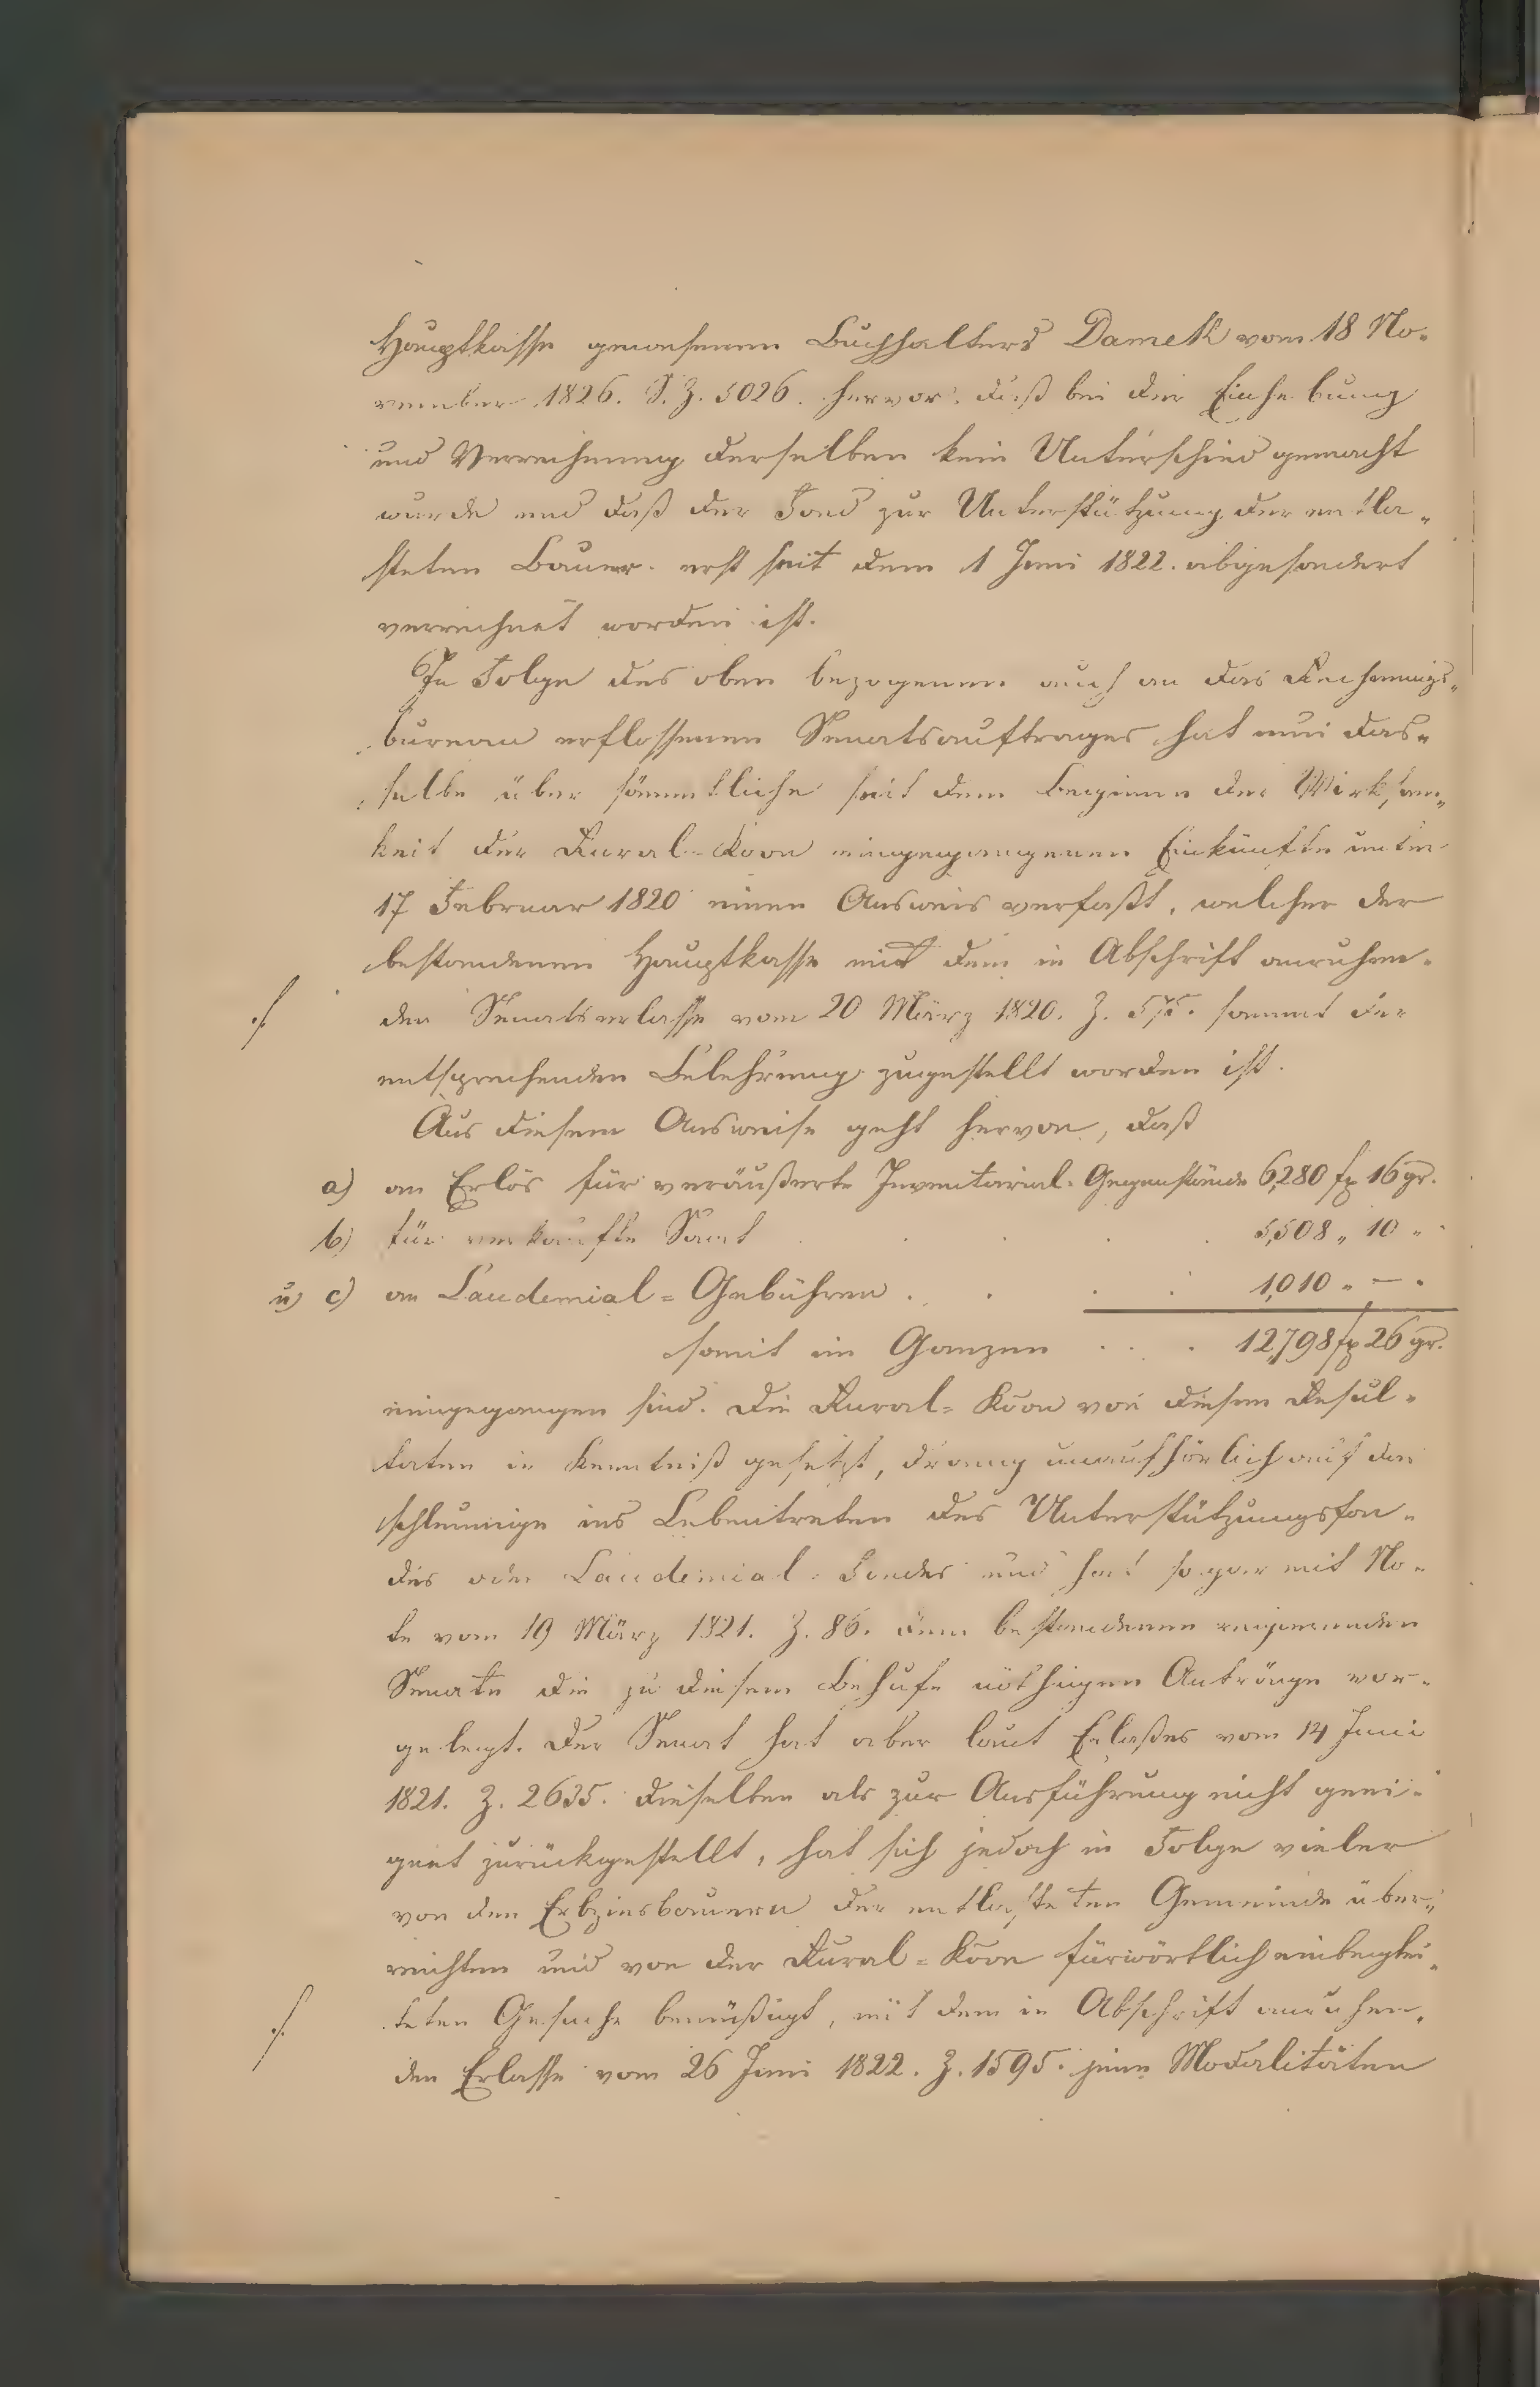 Hauptkasse gewesenen Buchhalters Dameth vom 18 No-
vember 1826. S. Z. 5026. hervor, daß bei der Einhebung
und Verrechnung derselben kein Unterschied gemacht
wurde und daß der Fond zur Unterstützung der entla-
steten Bauer erst seit dem 1 Juni 1822. abgesondert
verrechnet worden ist.
In Folge des oben bezogenen auch an das Rechnungs-
bureau erflossenen Senatsauftrages hat nun das-
selbe über sämmtliche seit dem Beginne der Wirksam-
keit der Rural-Koon eingegangenen Einkünfte unterm
17 Februar 1820 einen Ausweis verfaßt, welcher der
bestandenen Hauptkasse mit dem in Abschrift anruhen-
./. den Senatserlasse vom 20 März 1820. Z. 575. sammt der
entsprechenden Belehrung zugestellt worden ist.
Aus diesem Ausweise geht hervor, daß
a) an Erlös für veräußerte Inventarial-Gegenstände 6,280 fp 16 gr.
b) für verkaufte Saat . . . . . 5,508 „ 10 „
u) c) an Laudemial=Gebühren . . . . 1,010 „ — .
somit im Ganzen . . . 12,798 fp 26 gr.
eingegangen sind. Die Rural=Koon von diesen Resul-
taten in Kenntniß gesetzt, drang unaufhörlich auf das
schleunige ins Lebentreten des Unterstützungsfon-
des oder Laudemial-Fondes und hat sogar mit No-
te vom 19 März 1821. Z. 86. dem bestandenen regierenden
Senate die zu diesem Behufe nöthigen Anträge vor-
gelegt. Der Senat hat aber laut Erlaßes vom 14 Juni
1821. Z. 2635. dieselben als zur Ausführung nicht geei-
gnet zurückgestellt, hat sich jedoch in Folge vieler
von den Erbzinsbauern der entlasteten Gemeinde über-
reichten und von der Rural=Koon fürwörtlich einbeglei-
./. teten Gesuche bemüßigt, mit dem in Abschrift anruhen-
den Erlasse vom 26 Juni 1822. Z. 1595. jene Modalitäten